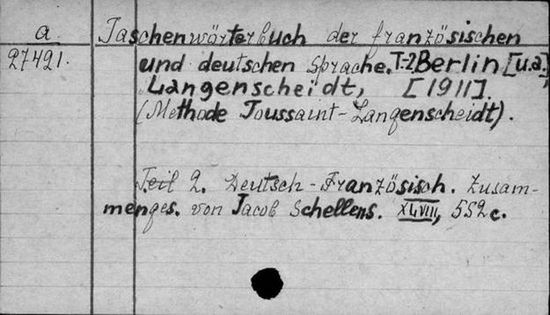 a. Taschenwörterbuch der französischen
27421. und deutschen Sprache. T-2. Berlin [u.a.]
Langenscheidt, [1911].
(Methode Toussaint-Langenscheidt).
Teil 2. Deutsch-Französisch. Zusam-
menges. von Jacob Schellens. XLVIII, 552 c.